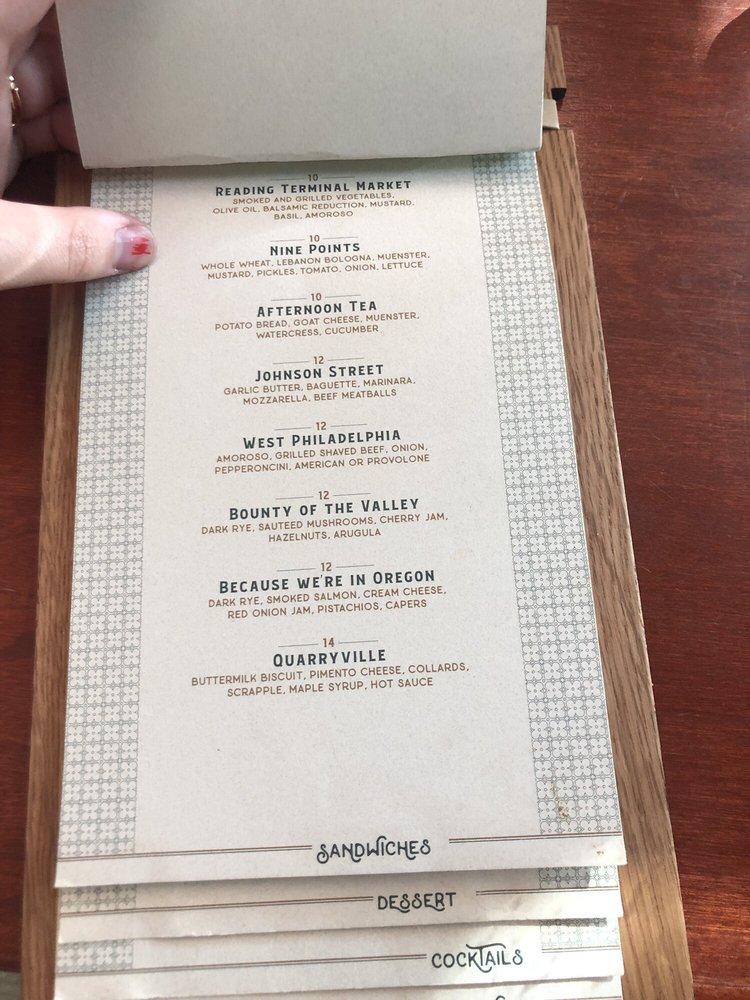 10
READING TERMINAL MARKET
SMOKED AND GRILLED VEGETABLES,
OLIVE OIL, BALSAMIC REDUCTION, MUSTARD,
BASIL, AMOROSO
10
NINE POINTS
WHOLE WHEAT, LEBANON BOLOGNA, MUENSTER,
MUSTARD, PICKLES, TOMATO, ONION, LETTUCE
10
AFTERNOON TEA
POTATO BREAD, GOAT CHEESE, MUENSTER,
WATERCRESS, CUCUMBER
12
JOHNSON STREET
GARLIC BUTTER, BAGUETTE, MARINARA,
MOZZARELLA, BEEF MEATBALLS
12
WEST PHILADELPHIA
AMOROSO, GRILLED SHAVED BEEF, ONION,
PEPPERONCINI, AMERICAN OR PROVOLONE
12
BOUNTY OF THE VALLEY
DARK RYE, SAUTEED MUSHROOMS, CHERRY JAM,
HAZELNUTS, ARUGULA
12
BECAUSE WE'RE IN OREGON
DARK RYE, SMOKED SALMON, CREAM CHEESE,
RED ONION JAM, PISTACHIOS, CAPERS
14
QUARRYVILLE
BUTTERMILK BISCUIT, PIMENTO CHEESE, COLLARDS,
SCRAPPLE, MAPLE SYRUP, HOT SAUCE
SANDWICHES
DESSERT
COCKTAILS